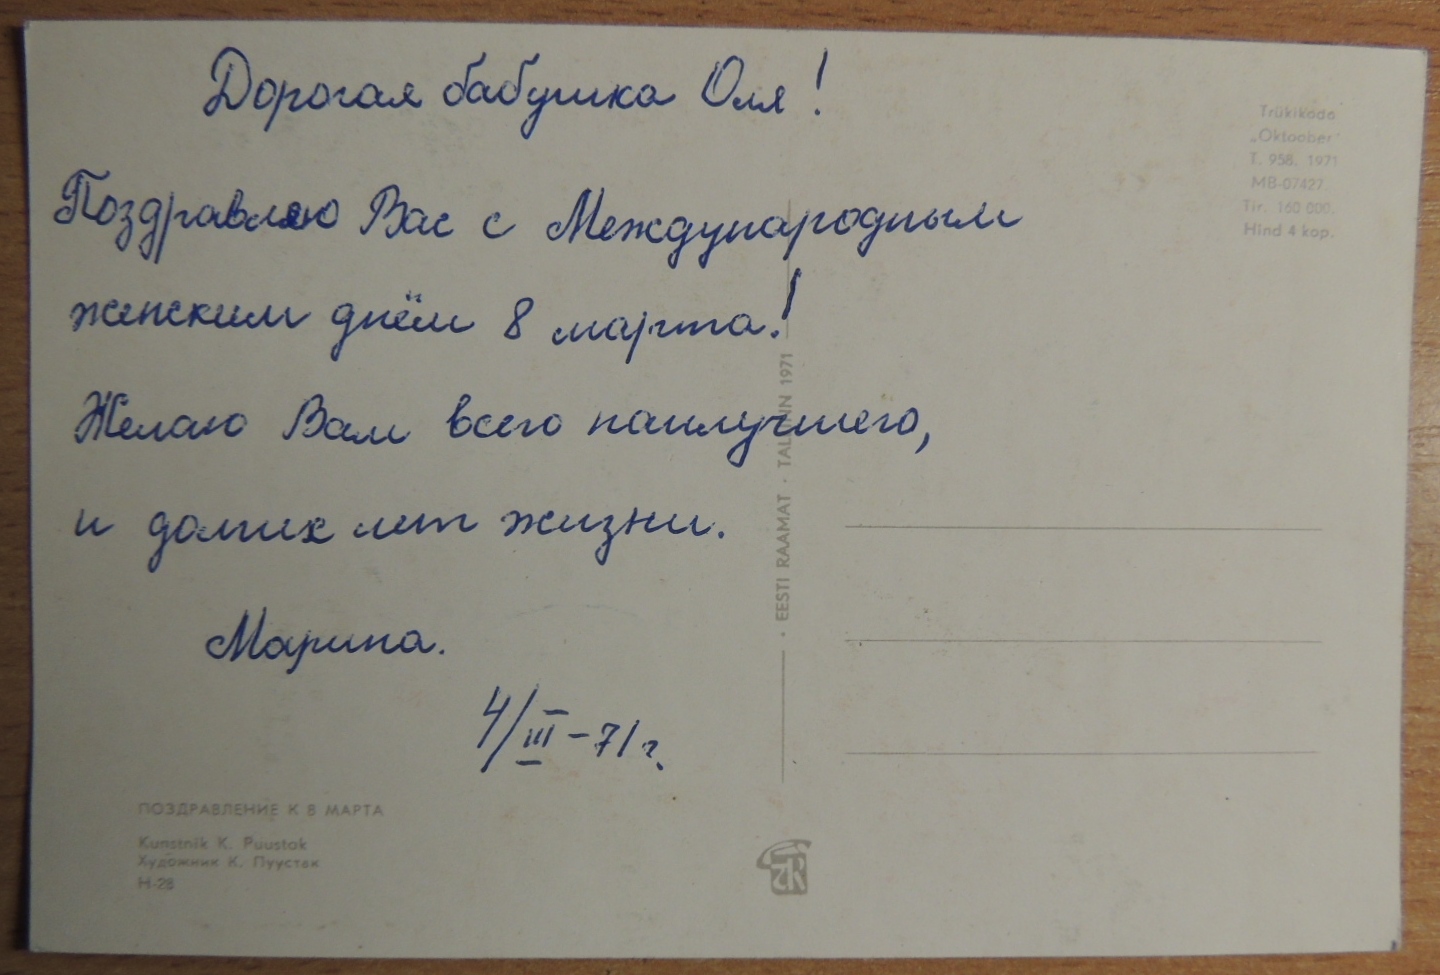 Дорогая бабушка Оля!
Поздравляю Вас с Международным
женским днём 8 марта!
Желаю Вам всего наилучшего,
и долгих лет жизни.
Марина.
4/III-71 г.
ПОЗДРАВЛЕНИЕ К 8 МАРТА
Kunstnik K. Puustak
Художник К. Пуустак
Н-28
· EESTI RAAMAT · TALLINN 1971
Trükikoda
„Oktoober"
T. 958. 1971
MB-07427.
Tir. 160 000.
Hind 4 kop.